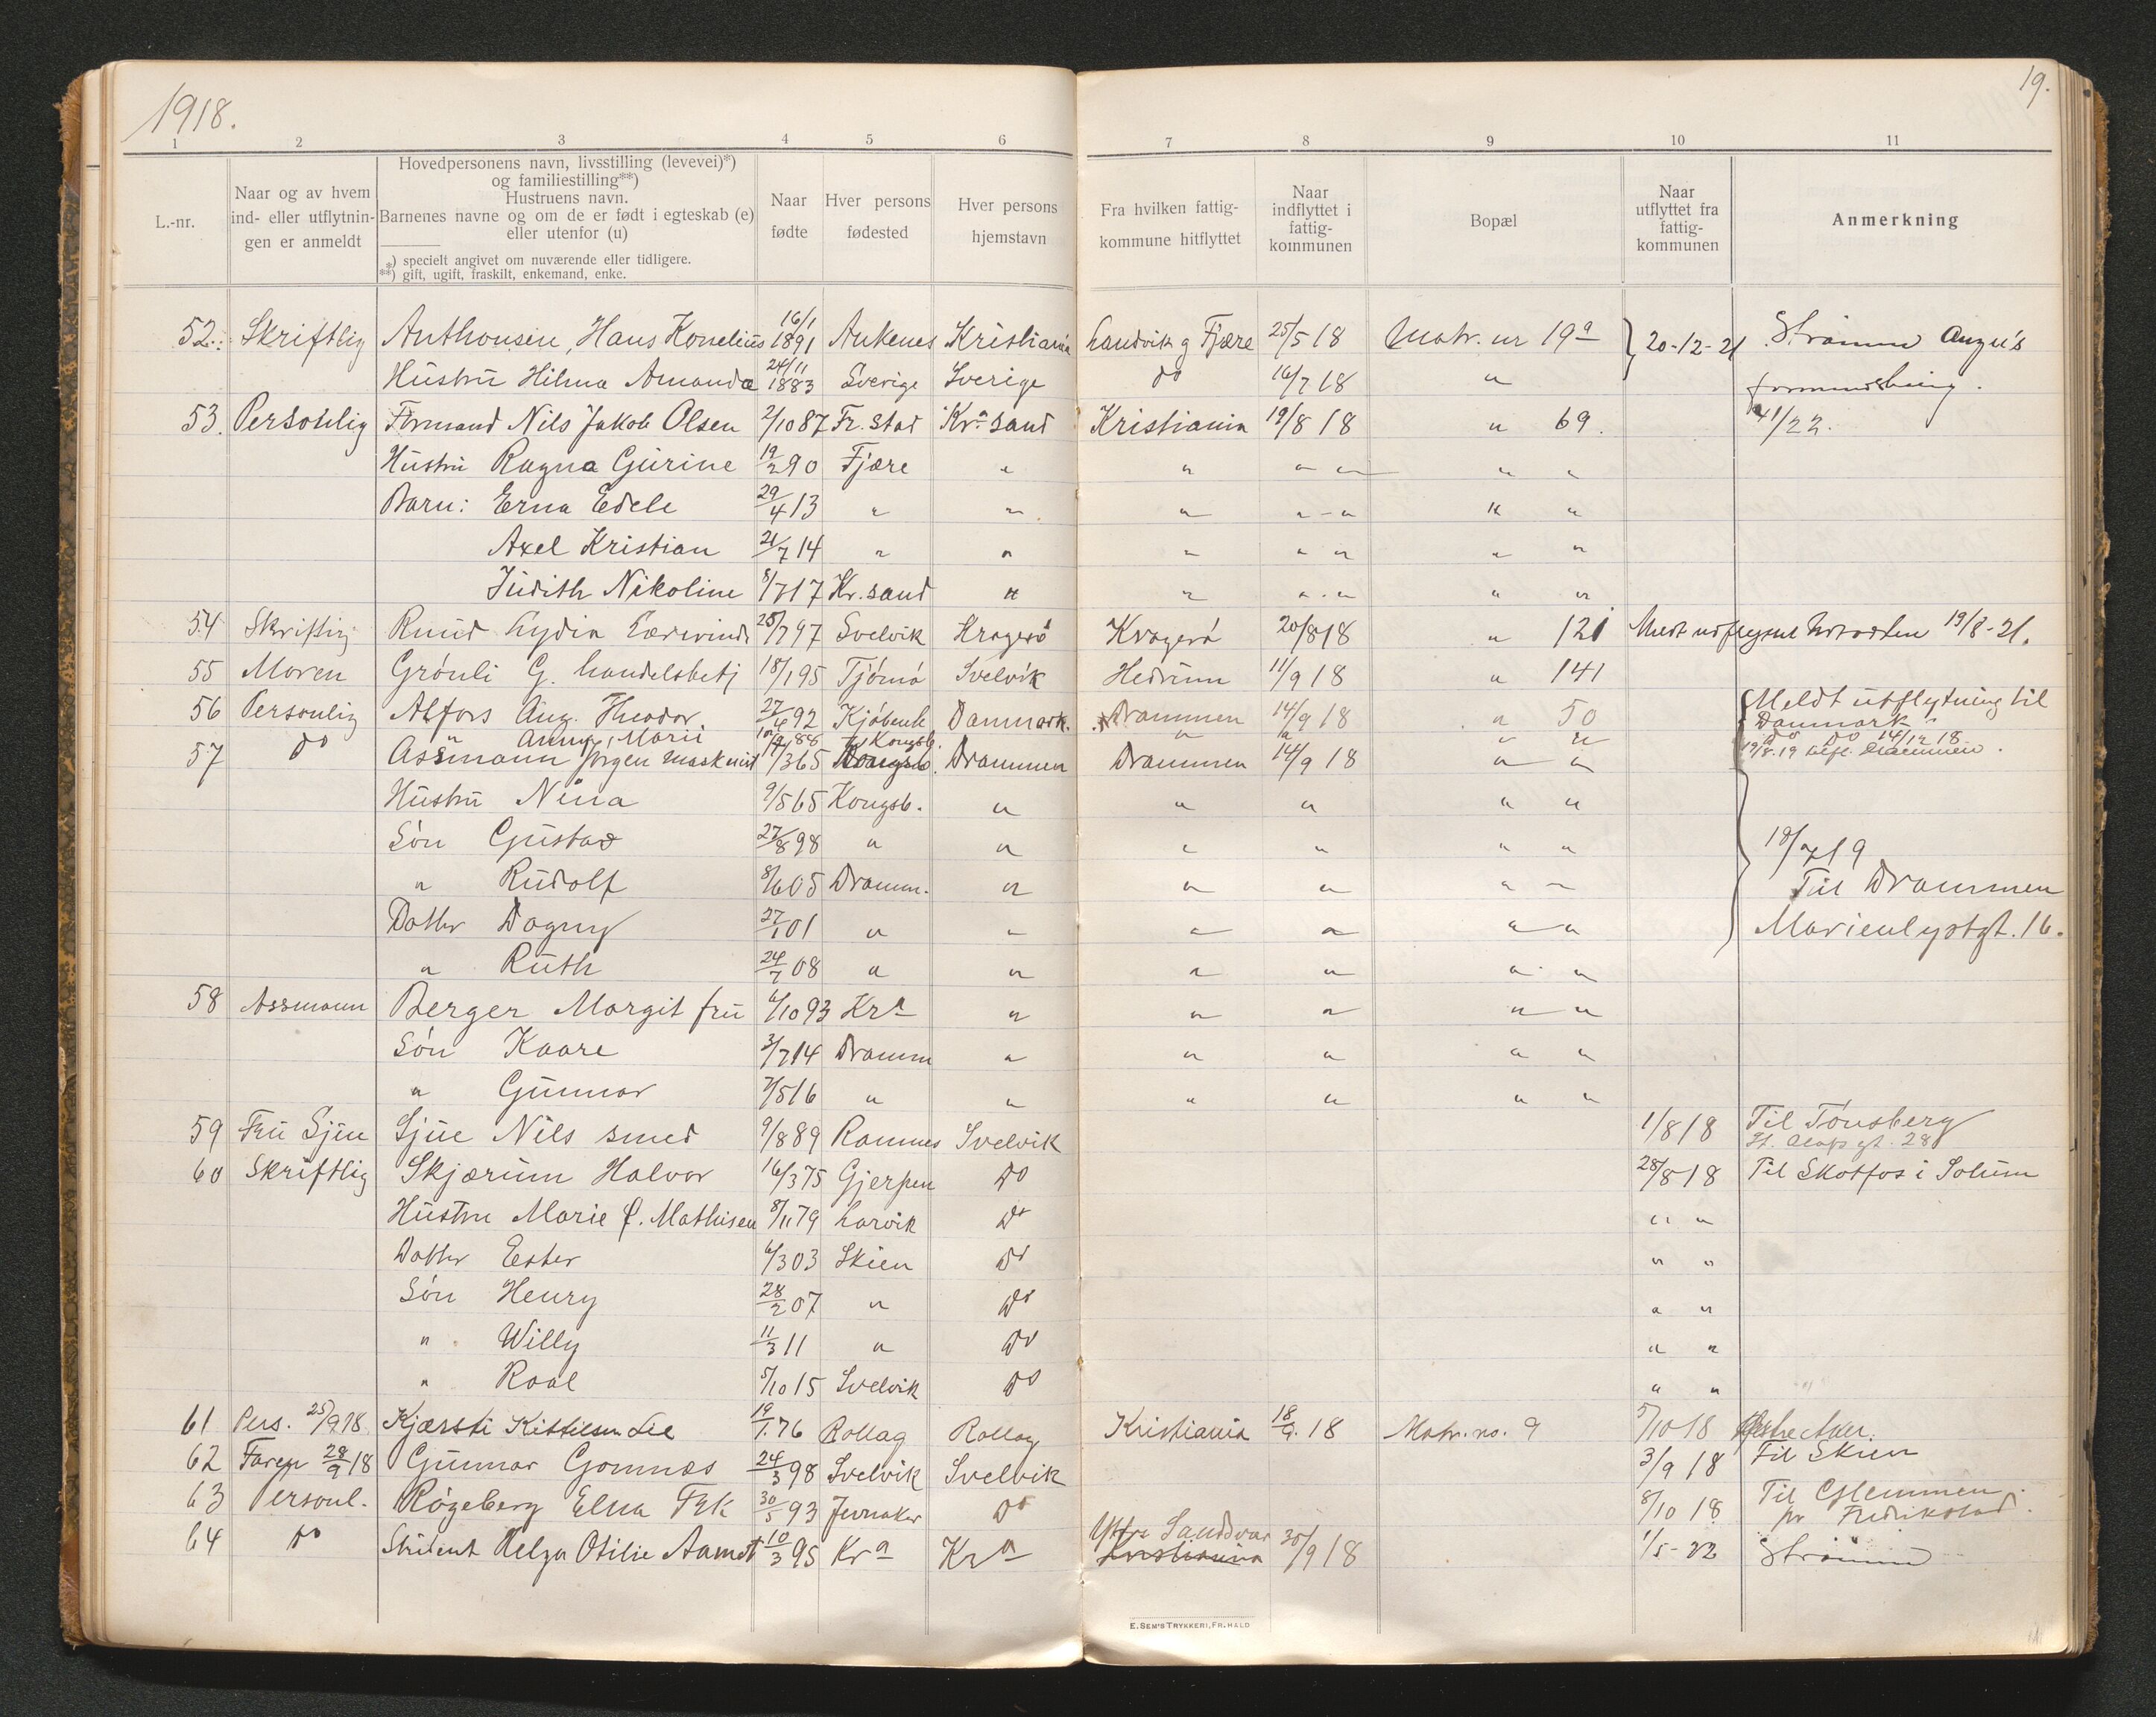 1918.
19.
1 2 3 4 5 6 7 8 9 10 11
L.-nr.
Naar og av hvem ind- eller utflytnin- gen er anmeldt
Hovedpersonens navn, livsstilling (levevei)*)
og familiestilling**)
Hustruens navn.
Barnenes navne og om de er født i egteskab (e)
eller utenfor (u)
*) specielt angivet om nuværende eller tidligere.
**) gift, ugift, fraskilt, enkemand, enke.
Naar fødte
Hver persons fødested
Hver persons hjemstavn
Fra hvilken fattig- kommune hitflyttet
Naar indflyttet i fattig- kommunen
Bopæl
Naar utflyttet fra fattig- kommunen
Anmerkning
52. Skriftlig Anthonsen, Hans Konelius 16/1 1891 Ankenes Kristiania Landvik g Fjære 25/5 18 Matr. nr 19a } 20-12-21 Strömm
Hustru Hilma Amanda 24/11 1883 Sverige Sverige do 16/7 18 "
53. Personlig Formand Nils Jakob Olsen 2/10 87 Fr. stad Kr.a sand Kristiania 19/8 18 " 69. 4/1/22.
Hustru Ragna Gurine 19/2 90 Fjære " " " " " "
Barn: Erna Edele 29/4 13 " " " " - " " "
Axel Kristian 21/7 14 " " " " " " "
Judith Nikoline 8/7 17 Kr. sand " " " . " " "
54 Skriftlig Ruud Lydia 25/7 97 Svelvik Kragerö Kragerö 20/8 18 " 121 19/8-21.
55 Moren Grönli G. handelsbetj 18/1 95 Tjömö Svelvik Hedrum 11/9 18 " 141
56 Personlig Alfors Aug. Theodor. 27/4 92 Kjöbenh Danmark. Drammen 14/9 18 " 50 Meldt utflytning til
" Anny, Marie 88 Kongsb. " " " " Danmark
do do 14/12 18
57 do Assmann Jörgen maskinist 1/3 65 Drammen Drammen 14/9 18 " " 19/8.19 utfl. Drammen.
Hustru Nina 9/5 65 Kongsb. " " " " "
Sön Gustav 27/8 98 " " " " " " 18/7 19
" Rudolf 8/6 05 Dramm. " " " " " Til Drammen
Datter Dagny 27/1 01 " " " " " " Marienlystgt. 16.
" Ruth 24/7 08 " " " " " "
58 Assmann Berger Margit fru 6/10 93 Kra " " " " "
Sön Kaare 3/7 14 Dramm " " " " "
" Gunnar 7/5 16 " " " " " "
59 Fru Sjue Sjue Nils smed 9/8 89 Ramnes Svelvik 1/8 18 Til Tönsberg
St. Olafs gt. 28
60 Skriftlig Skjærum Halvor 16/3 75 Gjerpen do 28/8 18 Til Skotfos i Solum
Hustru Marie f. Mathisen 8/11 79 Larvik do " "
Datter Ester 6/3 03 Skien do " "
Sön Henry 28/2 07 " do " "
" Willy 11/3 11 " do " "
" Roal 5/10 15 Svelvik do " "
61 Pers. 25/9 18 Kjærsti Kittilsen Lie 19/1. 76 Rollag Rollag Kristiania 18/9. 18 Matr. no. 9 5/10 18 Aker.
62 Faren 28/9 18 Gunnar Gomnæs 24/3 98 Svelvik Svelvik 3/9 18 Til Skien
63 Personl. Rögeberg Elna Frk 30/5 93 Jevnaker do 8/10 18 Til Glemmen
pr Fredrikstad.
64 do Student Helga Otilie Aamodt 10/3 95 Kra Kra Yttre Sandsvær 30/9 18 1/5-22 Strömm
Kristiania
E. SEM'S TRYKKERI, FR.HALD